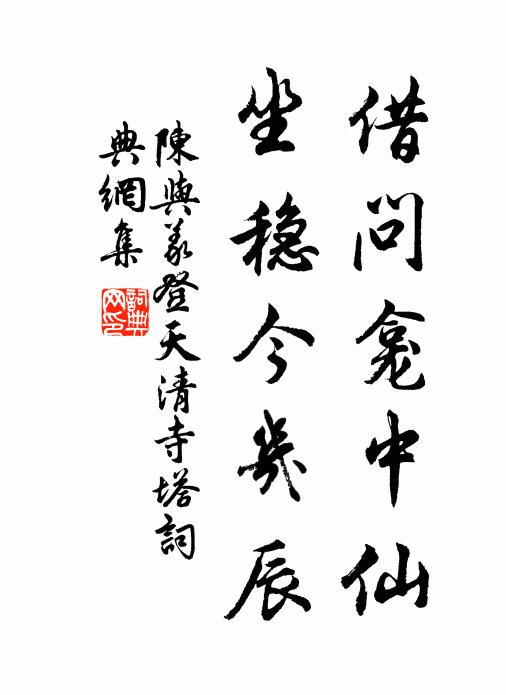 借问龛中仙
坐稳今幾辰
陳與義登天清寺塔詞
典網集
詞典
网印